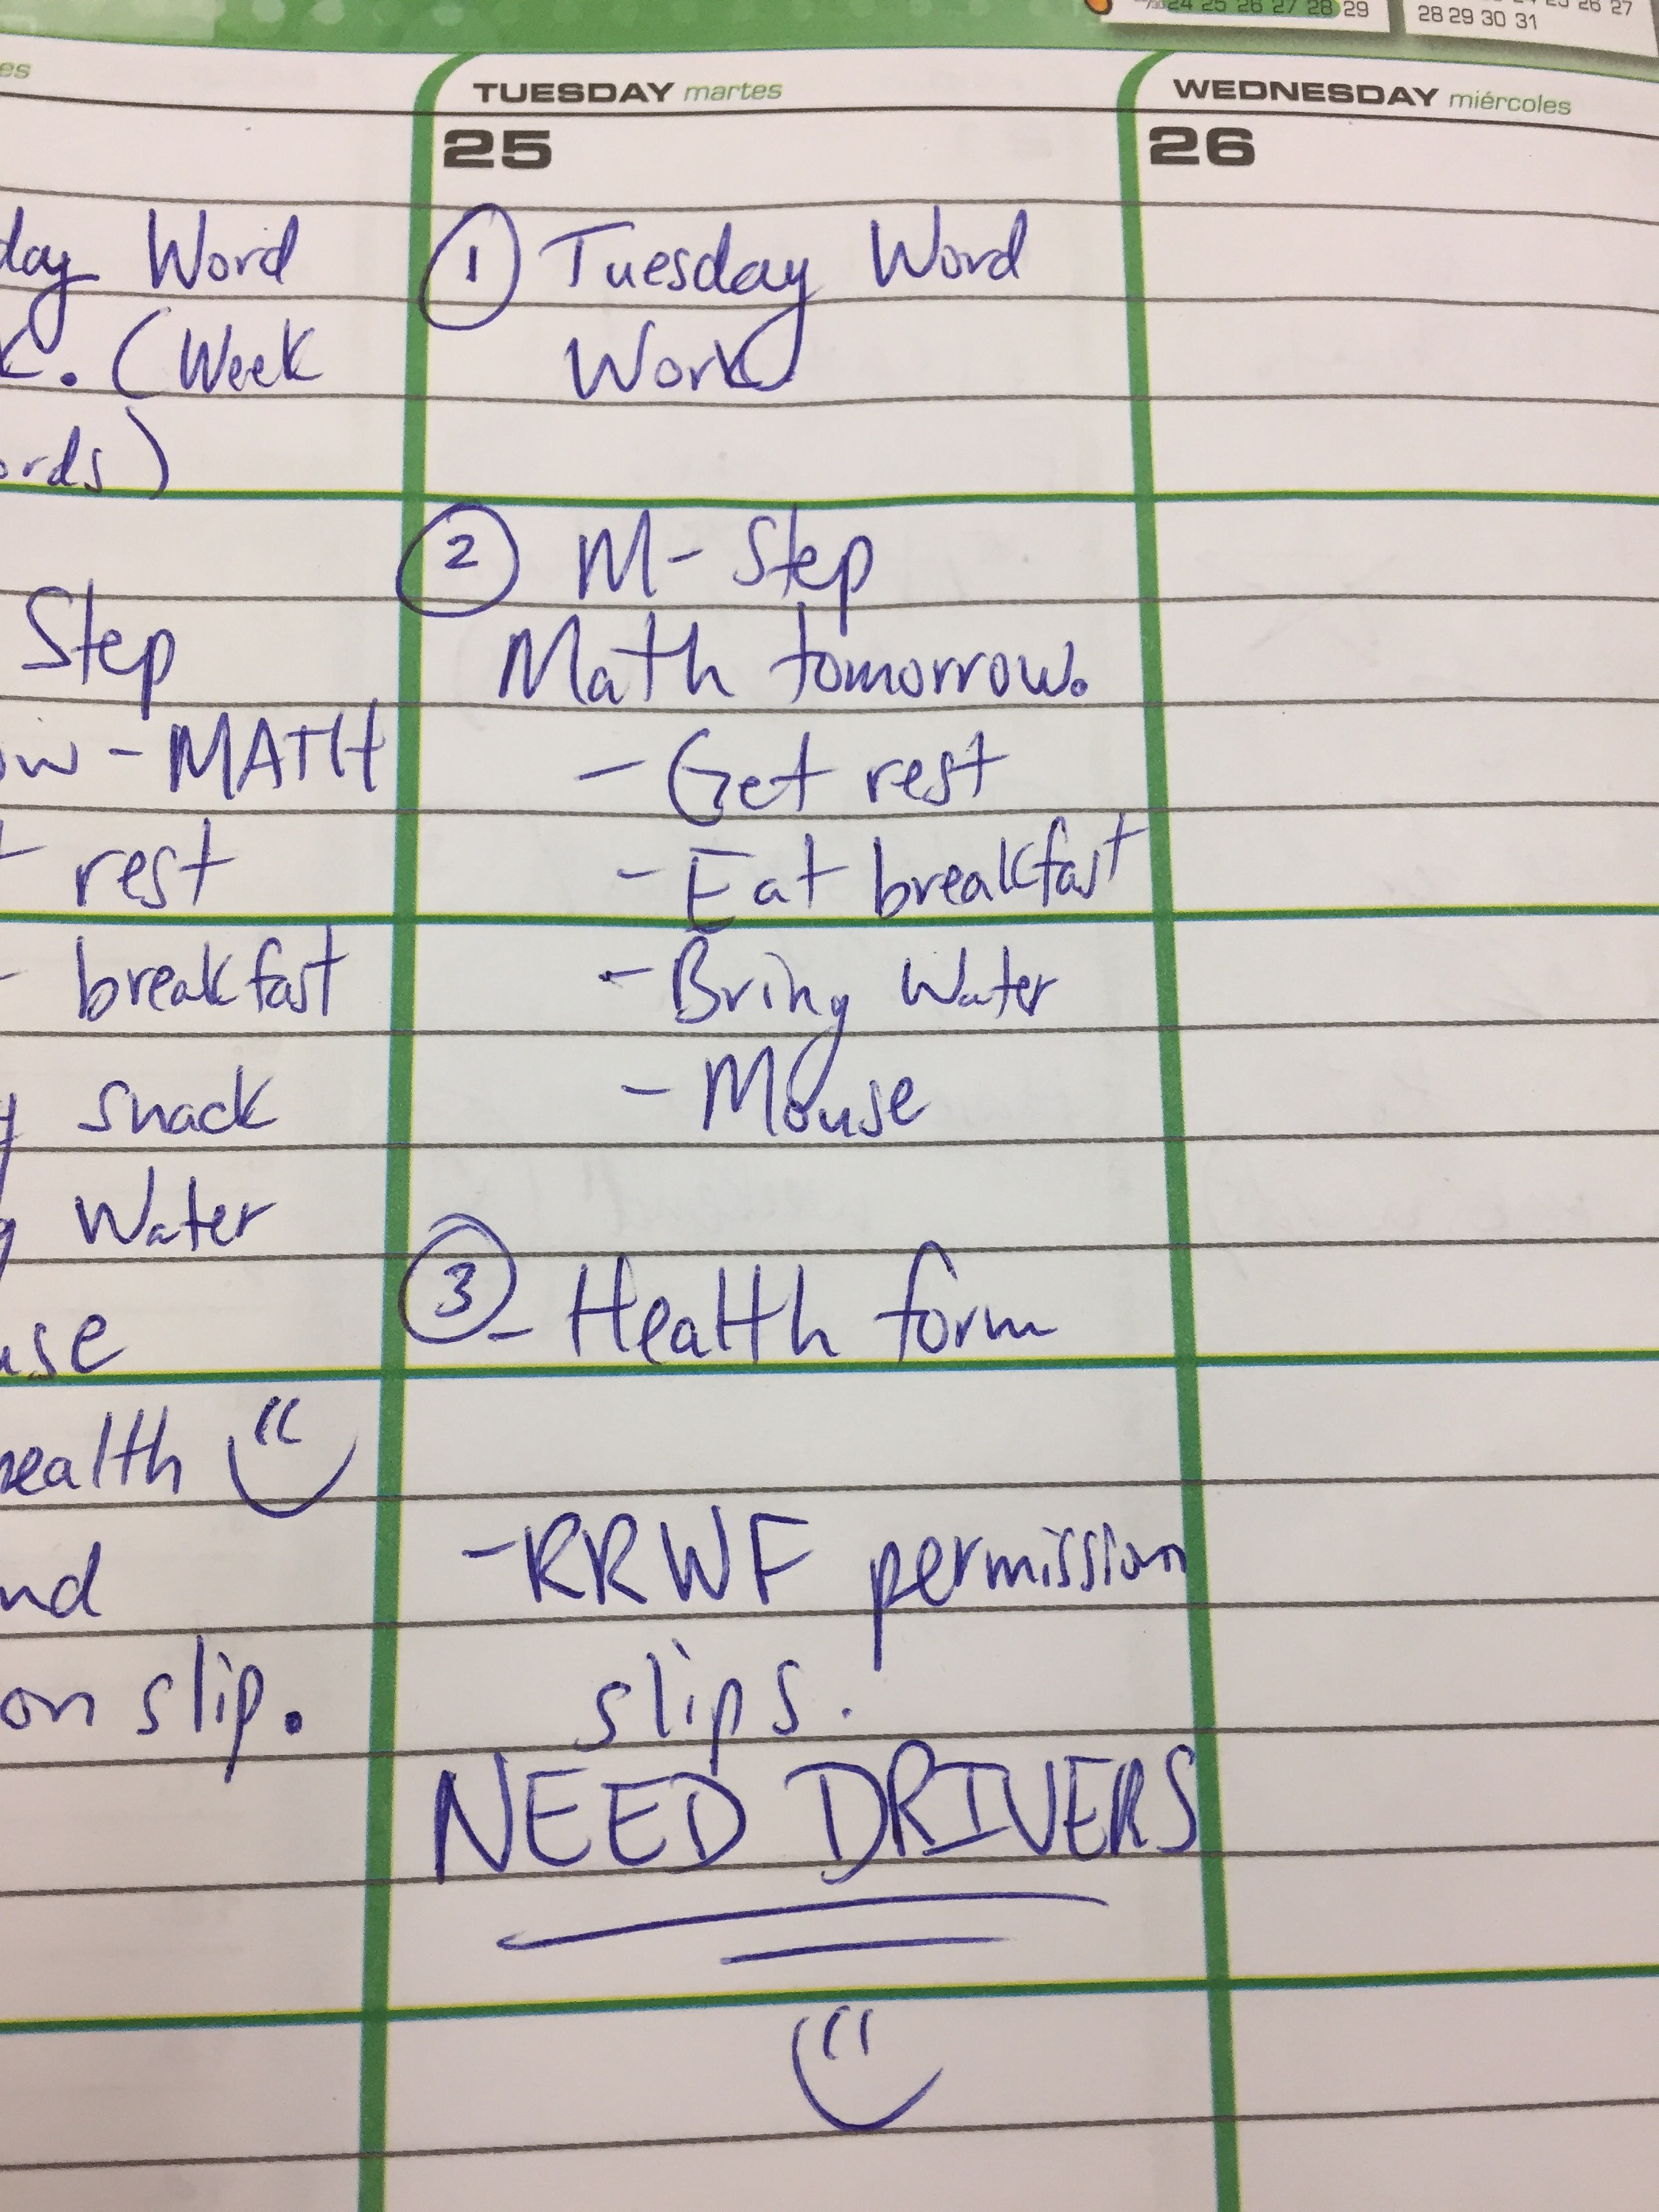 24 25 26 27 28 29
26 27
28 29 30 31
es
day Word
k. (Week
ords)
Step
ow - MATH
rest
- breakfast
y snack
g Water
use
health
nd
on slip.
TUESDAY martes
25
① Tuesday Word
Work
② M-Step
Math tomorrow.
- Get rest
- Eat breakfast
- Bring Water
- Mouse
③ - Health form
- RRWF permission
slips.
NEED DRIVERS
WEDNESDAY miércoles
26